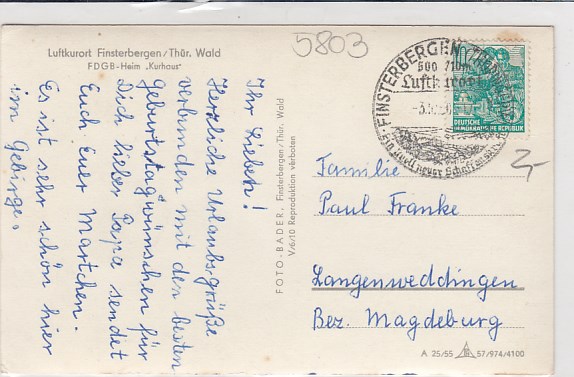 Luftkurort Finsterbergen/Thür. Wald
FDGB-Heim „Kurhaus"
5803
Ihr Lieben!
Herzliche Urlaubsgrüße
verbunden mit den besten
Geburtstagwünschen für
Dich lieber Papa sendet
Euch Euer Martchen.
Es ist sehr schön hier
im Gebirge.
FOTO-BADER, Finsterbergen/Thür. Wald
V/6/10 Reproduktion verboten
FINSTERBERGEN
500
Luftkurort
DEUTSCHE
DEMOKRATISCHE REPUBLIK
2,-
Familie
Paul Franke
Langenweddingen
Bez. Magdeburg
A 25/55 57/974/4100